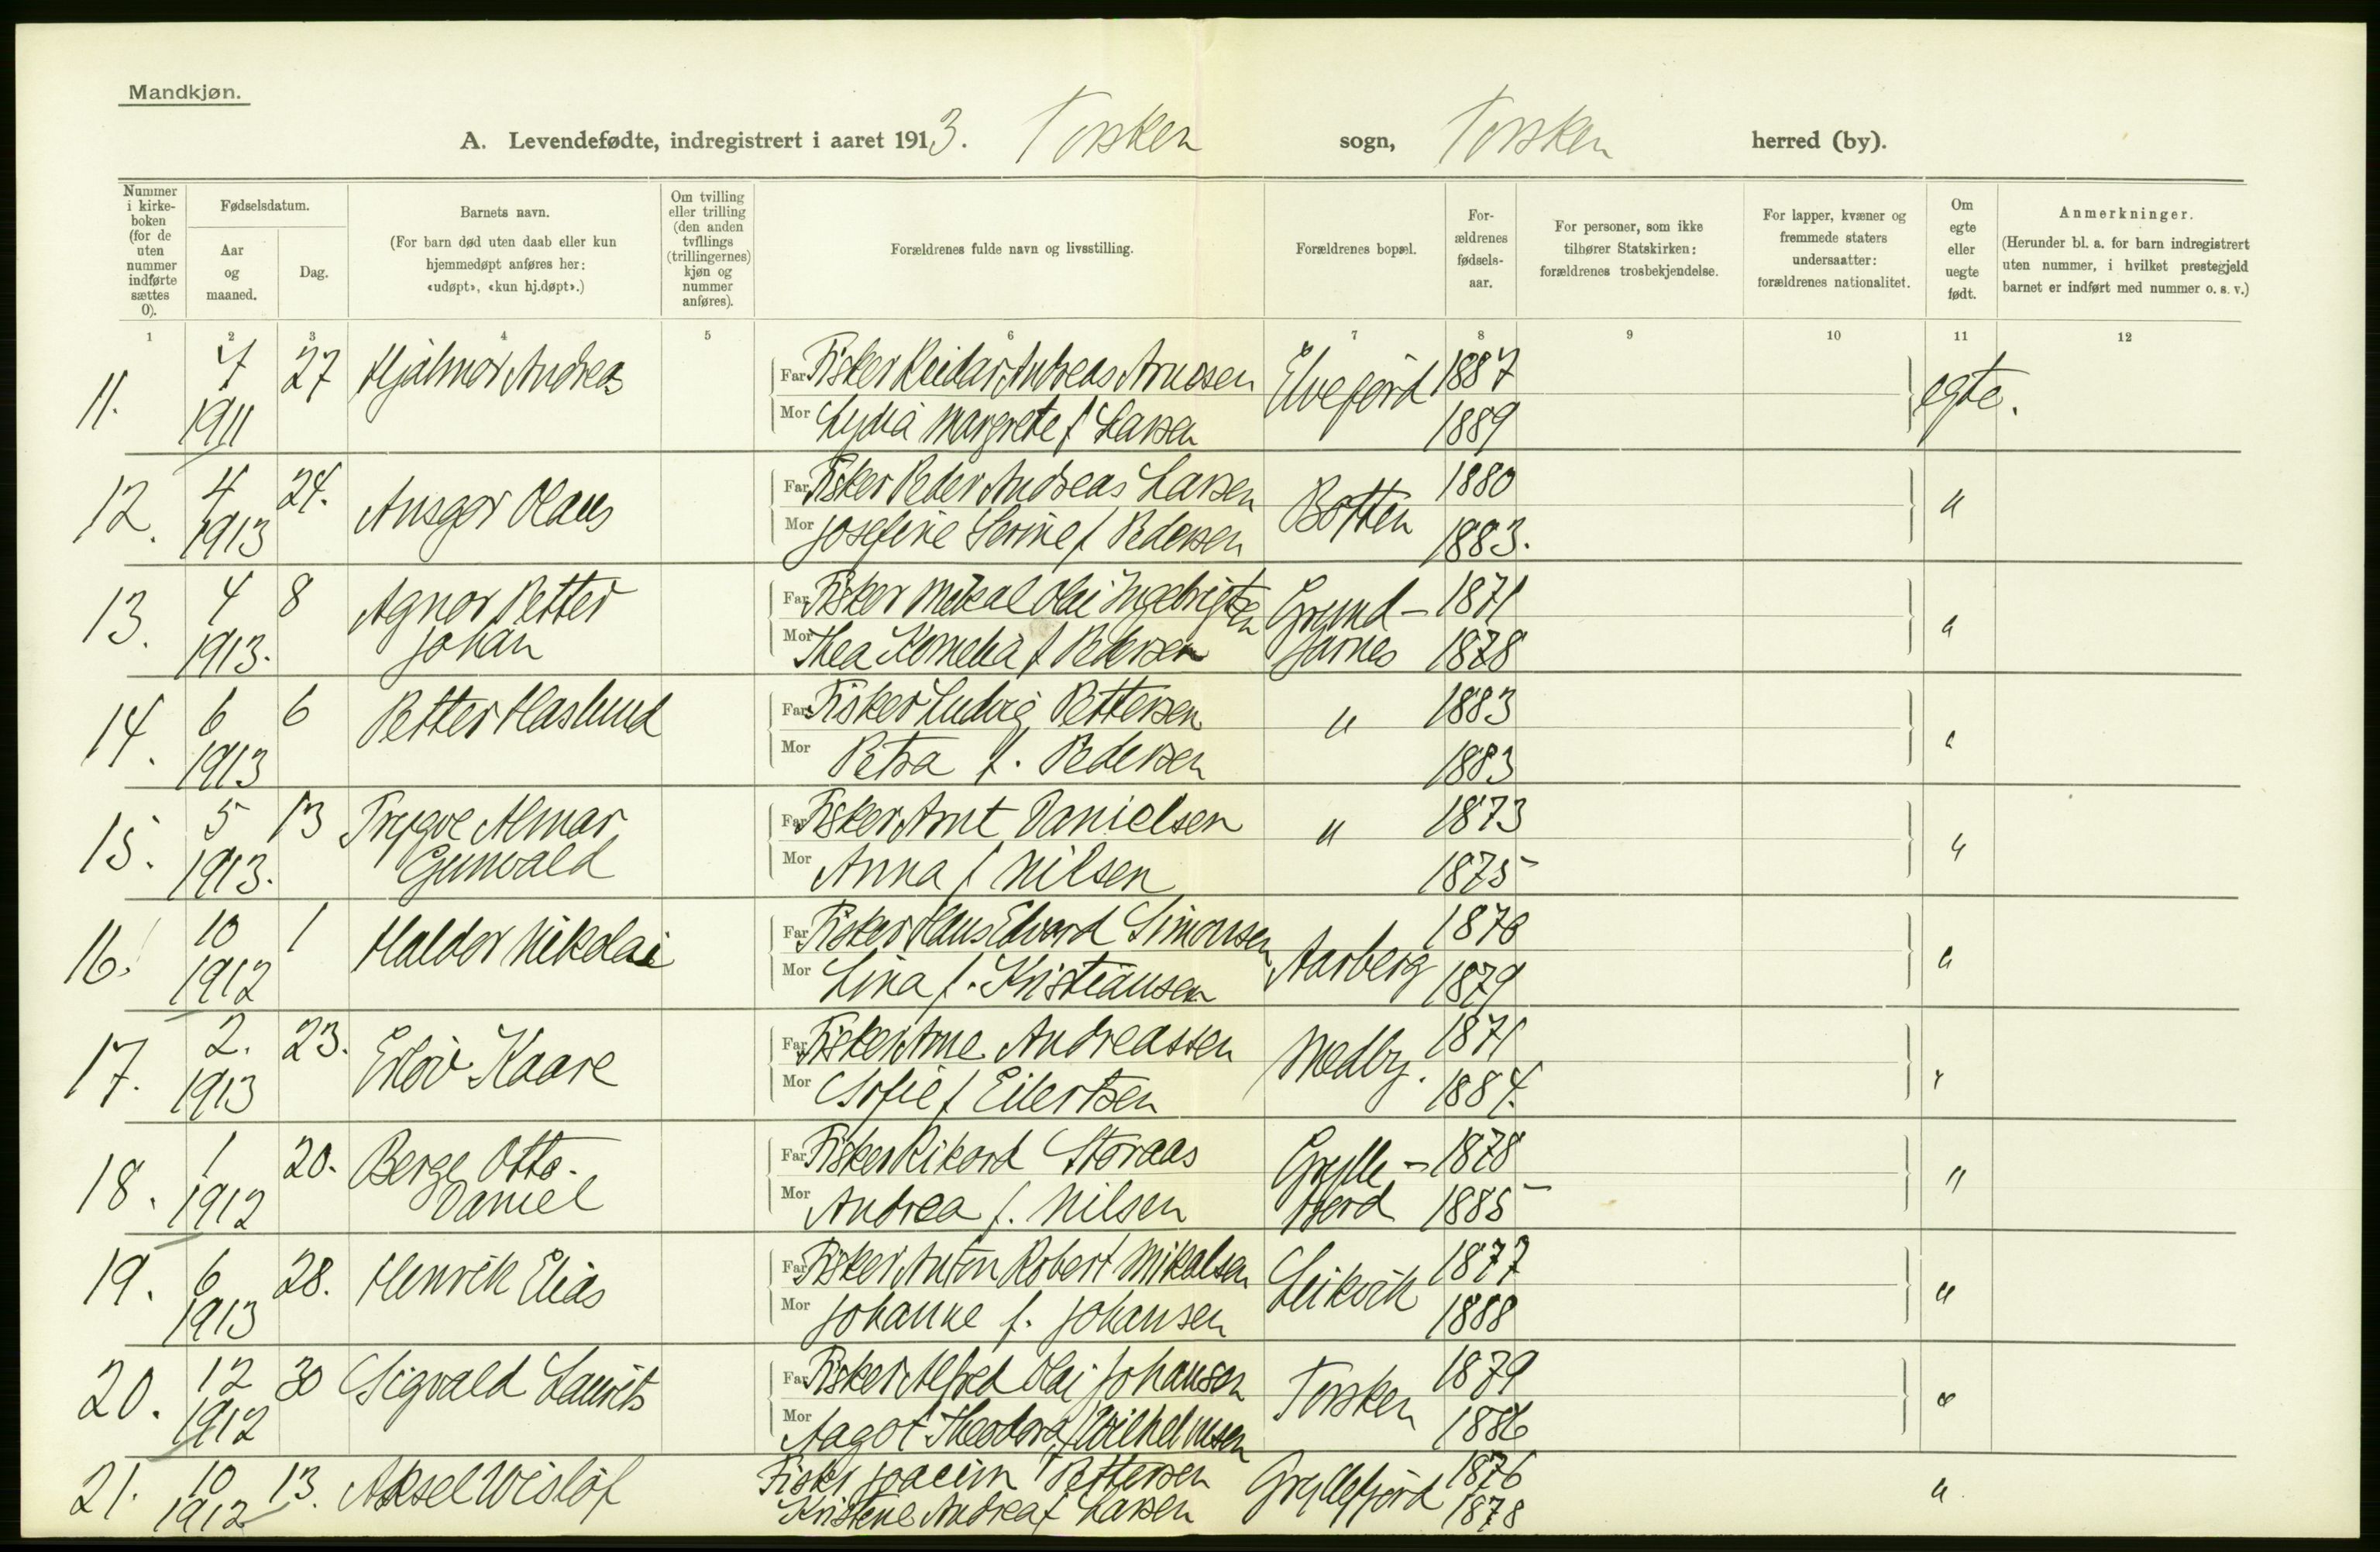 Mandkjøn.
A. Levendefødte, indregistrert i aaret 1913. Torsken sogn, Torsken herred (by).
Nummer i kirke-boken (for de uten nummer indførte sættes 0).
Fødselsdatum.
Aar og maaned.
Dag.
Barnets navn.
(For barn død uten daab eller kun hjemmedøpt anføres her: «udøpt», «kun hj.døpt».)
Om tvilling eller trilling (den anden tvillings (trillingernes) kjøn og nummer anføres).
Forældrenes fulde navn og livsstilling.
Forældrenes bopæl.
For-ældrenes fødsels-aar.
For personer, som ikke tilhører Statskirken: forældrenes trosbekjendelse.
For lapper, kvæner og fremmede staters undersaatter: forældrenes nationalitet.
Om egte eller uegte født.
Anmerkninger.
(Herunder bl. a. for barn indregistrert uten nummer, i hvilket prestegjeld barnet er indført med nummer o. s. v.)
1 2 3 4 5 6 7 8 9 10 11 12
11. 7 27 Hjalmar Andreas Far Fisker Reidar Andreas Arnesen Elvefjord 1887 egte.
1911 Mor Lydia Margrete f Larsen 1889
12. 4 24. Ansgar Olaus Far Fisker Peder Andreas Larsen Botten 1880 "
1913 Mor Josefine Serine f Pedersen 1883.
13. 4 8 Agnor Petter Far Fisker Mikal Olai Ingebrigtsen Grund- 1871 "
1913. Johan Mor Thea Kornelia f Pedersen farnes 1878
14. 6 6 Petter Haslund Far Fisker Ludvig Pettersen " 1883 "
1913 Mor Petra f. Pedersen 1883
15. 5 13 Trygve Almar Far Fisker Arnt Danielsen " 1873 "
1913. Gunvald Mor Anna f Nilsen 1875
16. 10 1 Haldor Nikolai Far Fisker Hans Edvard Simonsen Aarberg 1878 "
1912 Mor Lina f. Kristiansen 1879
17. 2. 23. Kaare Far Fisker Arne Andreassen Medby. 1871 "
1913 Mor Sofie f Eilertsen 1884.
18. 1 20. Berge Otto Far Fisker Rikard Storaas Grylle- 1878 "
1912 Daniel Mor Andrea f. Nilsen fjord 1885
19. 6 28. Henrik Elias Far Fisker Anton Robert Mikalsen Leikvik 1877 "
1913 Mor Johanne f. Johansen 1888
20. 12 30 Sigvald Laurits Far Fisker Alfred Olai Johansen Torsken 1879 "
1912 Mor Aagot Theodora f Wilhelmsen 1886
21. 10 13. Aksel Wisløf Fisker Joacim Pettersen Gryllefjord 1876 "
1912 Kristine Andrea f Larsen 1878